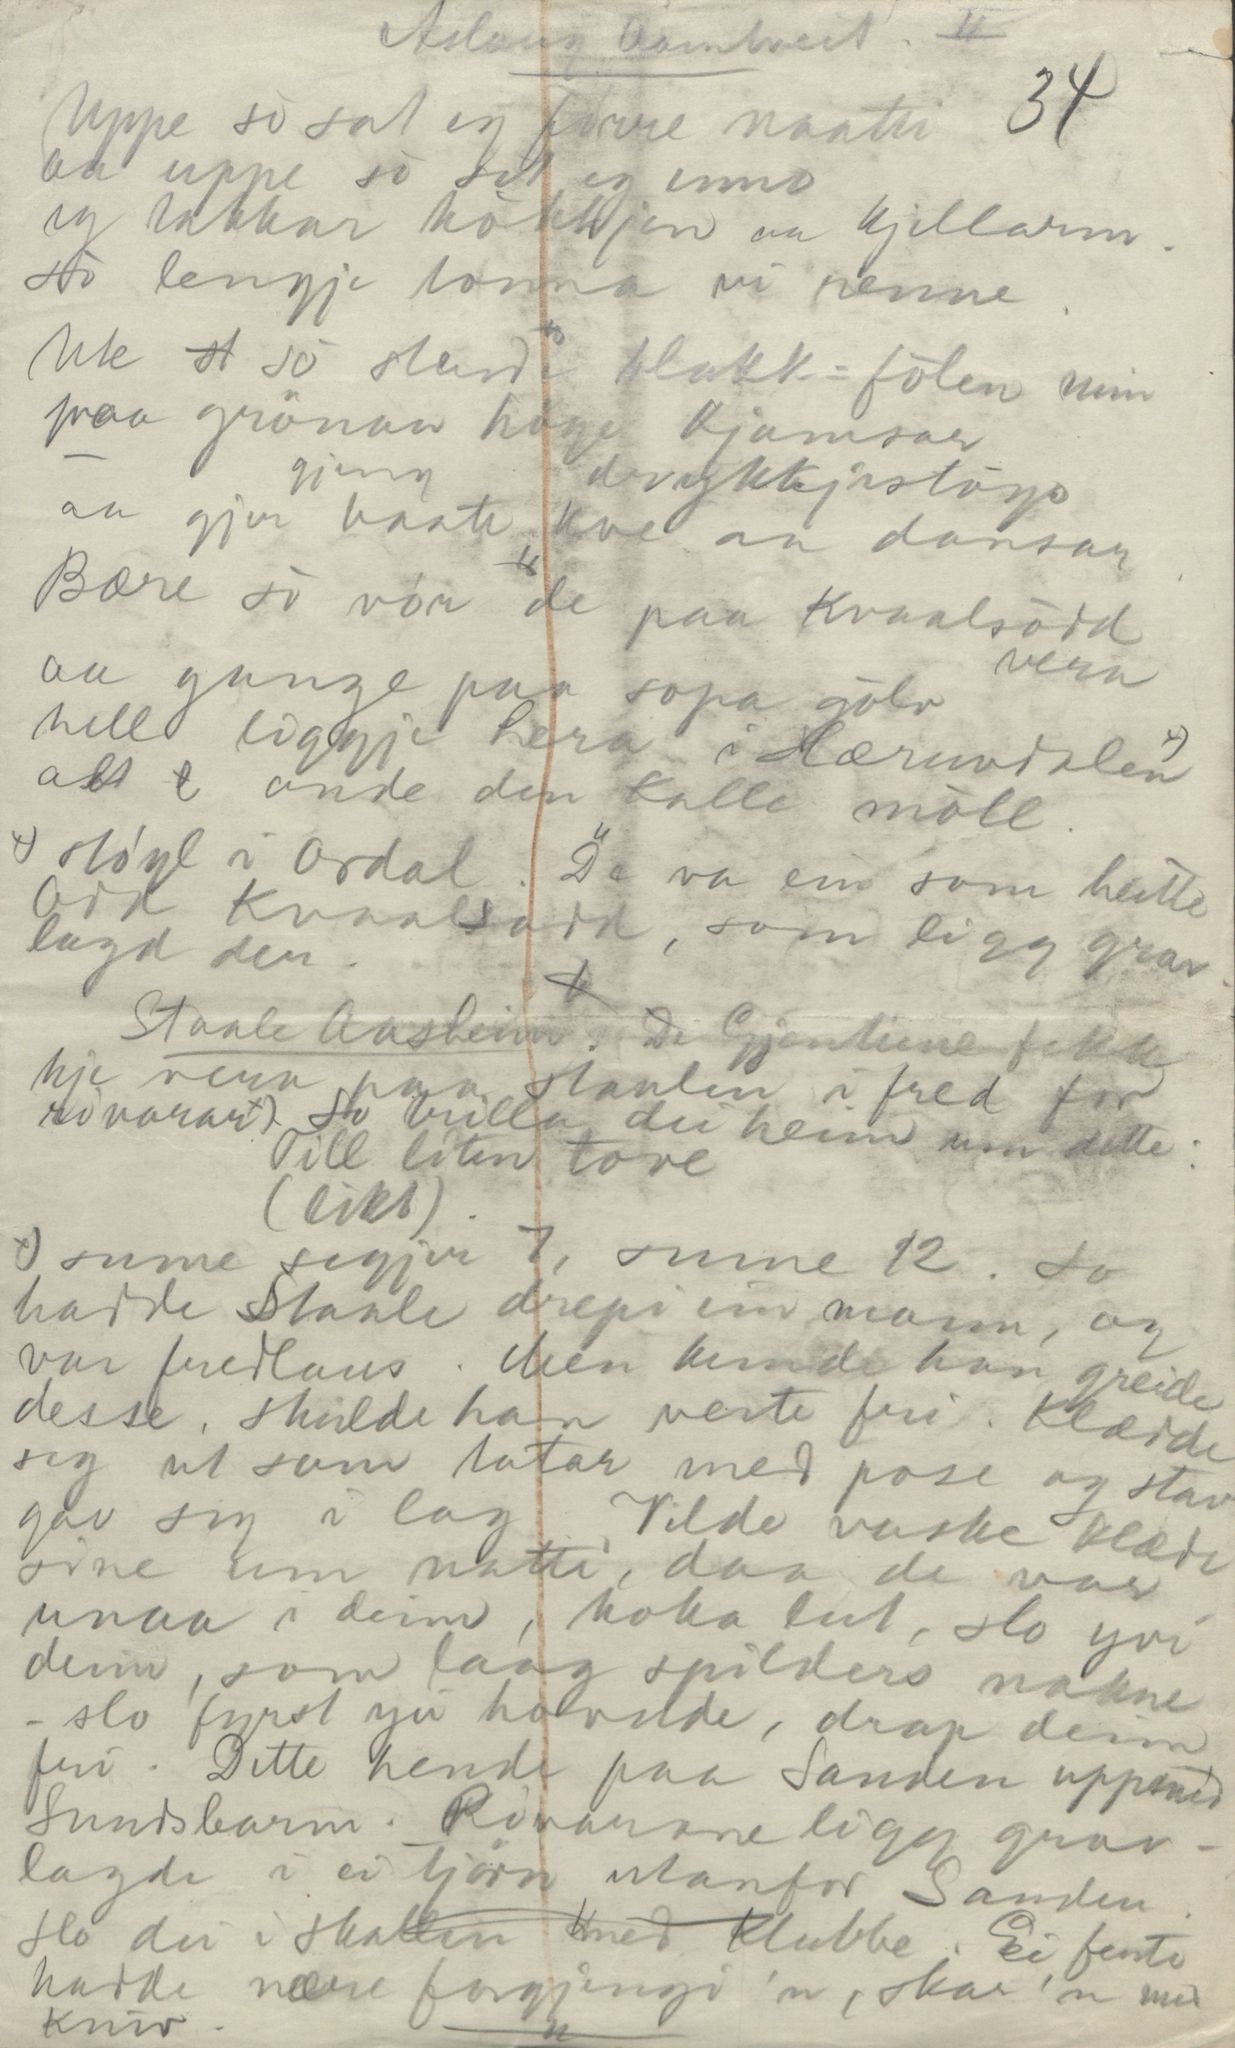 Aslaug Aamtveit. "
34
Uppe sò sat eg fórre naatti
aa uppe sò sit eg enno
eg takkar kökkjen aa kjellarm.
sò lengje tonna vi renne.
Ute st sò stend blakk=fölen min
paa grönan hage kjamsar
gjeng drykkjestògo
aa gjer baate kve aa dansar.
"
Bære sò vór de paa Kvaalsödd
vera
aa gange paa sopa gölv
hell liggje hera i Hæruvdalen x)
alt t onde den kalle möll.
x) stöyl i Ordal. " De va ein som heitte
Odd Kvaalsodd, som ligg grav-
lagd der.
Staale Aasheim. Di Gjentune fekk
kje vera paa staulen i fred for
rövarar x). So brilla dei heim um dette:
Till liten tove
(likt).
x) sume segjer 7, sume 12. So
hadde Staale drepi ein mann, og
var fredlaus. Men kunde han greide
desse, skulde han verte fri. Klædde
seg ut som tatar med pose og stav
gav seg i lag. Vilde vaske klædi
sine um natti, daa de var
unaa i deim, koka lut, slo yvi
deim, som laag spilders nakne
- slo fyrst yvi hovude, drap deim
fri. Dette hende paa Sanden uppmed
Sundsbarm. Rövarane ligg grav-
lagde i ei tjörn utanfor Sanden.
slo dei i skallen med klubbe. Ei fente
hadde nære forgjengi 'n, skar 'n med
kniv.
"